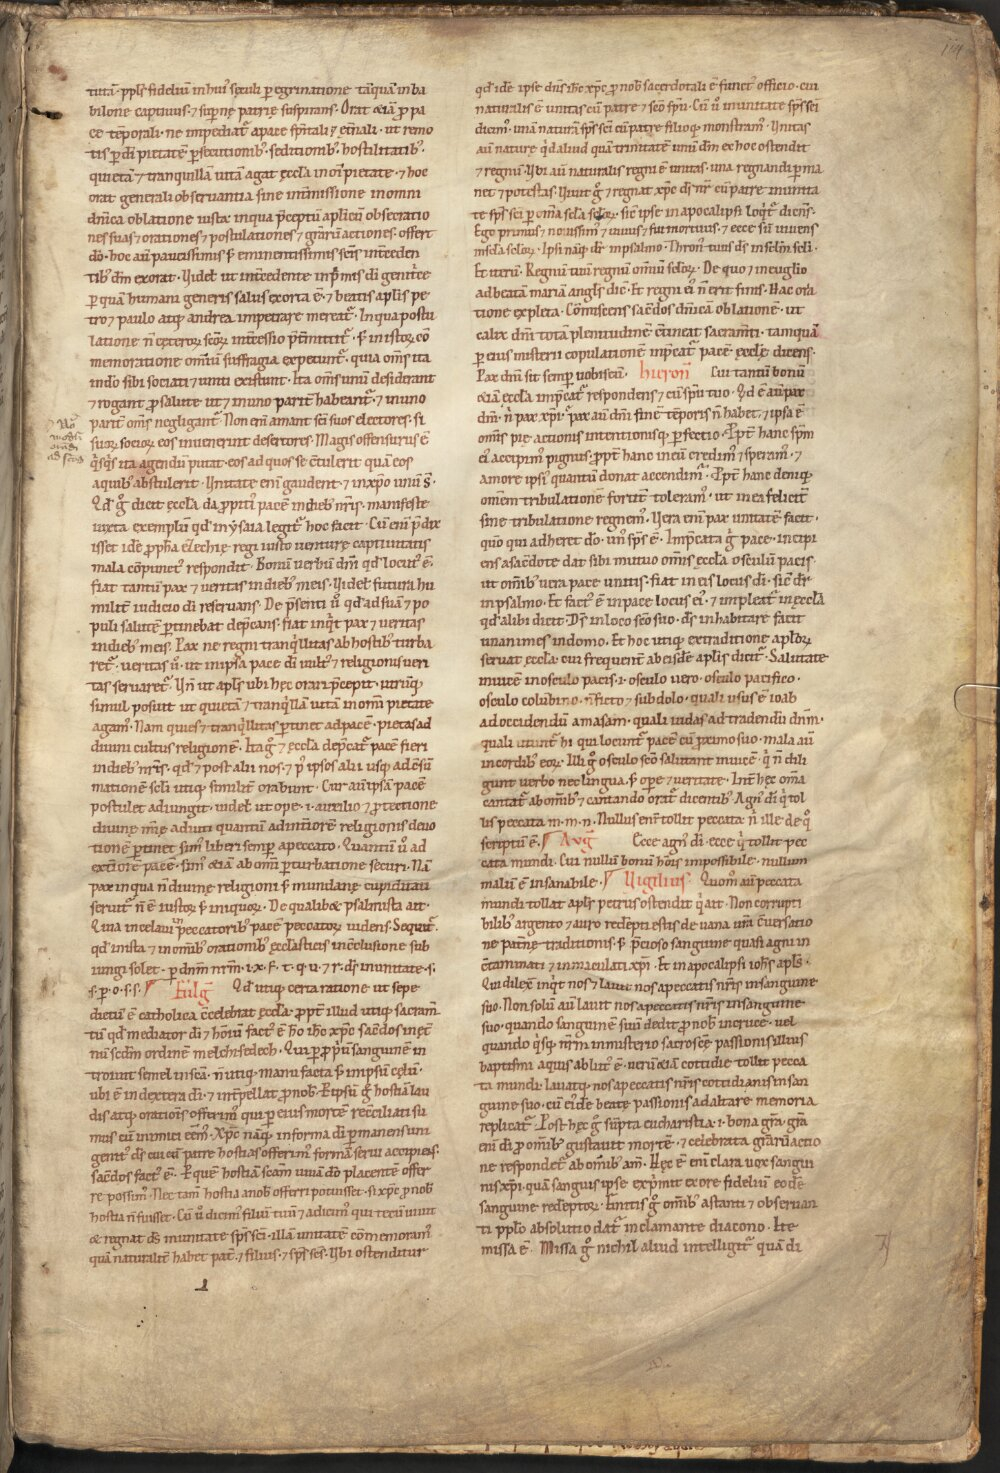 tutā · ppłs fideliū in huiꝰ seculi peregrinatione tāquā in ba
bilone captiuus · ⁊ supnę patrię suspirans · Orat &iā p pa
ce tēporali · ne impediat̄ a pace spītali ⁊ et̄nali · ut remo
tis p di pietatē psecutionibꝰ · seditionibꝰ · hostilitatibꝰ ·
quietā ⁊ tranquillā uitā agat ęccła in om̄i pietate · ⁊ hoc
orat generali obseruantia sine intmissione in omni
dn̄ica oblatione iuxta inqua pceptū aplicū obsecratio
nes suas ⁊ orationes ⁊ postulationes ⁊ gr̄arū actiones · offert
dō · hoc aū paucissimis ⁊ eminentissimis scīs inceden
tibꝰ dm̄ exorat · Videł ut intcedente inpmis di genitce
p quā humani generis salus exorta ē · ⁊ beatis aplis pe
tro ⁊ paulo atq andrea impetrare mereat̄ · In qua postu
latione ñ cęterorꝝ scōꝝ intcessio ptmittit̄ · s; in istorꝝ cō
memoratione om̄iū suffragia expetunt̄ · quia om̄s ita
in dō sibi sociati ⁊ uniti existunt · Ita om̄s unū desiderant
⁊ rogant p salute ut ⁊ in uno parit̄ habeant̄ · ⁊ in uno
parit̄ om̄s negligant̄ · Non enī amant scī suos electores · si
suorꝝ sociorꝝ eos inuenerint desertores · Magis offensurus ē
q̇sq̇s ita agendū putat · eos ad quos se c̄tulerit quā eos
a quibꝰ abstulerit · Unitate enī gaudent · ⁊ in xp̄o unū s̄ ·
Qd g̊ dicit ęccła da ppitiꝰ pacē in diebꝰ nr̄is · manifeste
iuxta exemplū qd in ysaia legit̄ hoc facit · Cū enī pdix
isset idē ppha ezechię regi iusto uenturę captiuitatis
mala cōpunctꝰ respondit · Bonū uerbū dn̄i qd locutꝰ ē ·
fiat tantū pax ⁊ ueritas in diebꝰ meis · Videł futura hu
milit̄ iudicio di reseruans · De psenti ů qd ad suā ⁊ po
puli salutē ptinebat depcans · fiat inq̇t pax ⁊ ueritas
in diebꝰ meis · Pax ne regni tranq̇llitas ab hostibꝰ turba
ret̄ · ueritas ů · ut in ipsa pace di cultꝰ ⁊ religionis ueri
tas seruaret̄ · Vñ ut apłs ubi hęc orari pcepit · utrūq
simul posuit ut quietā ⁊ tranq̇llā uitā in om̄i pietate
agamꝰ · Nam quies ⁊ tranq̇llitas ptinet ad pacē · pietas ad
diuini cultus religionē · Itaq g̊ ⁊ ęccła depcat̄ pacē fieri
in diebꝰ nr̄is · qd ⁊ post alii nos · ⁊ pꝰ ipsos alii usq ad c̄sū
mationē scłi utiq similit̄ orabunt · Cur aū ipsā pacē
postulet adiungit · uideł ut ope · i · auxilio ⁊ ptectione
diuinę mię adiuti quantū ad intiorē religionis deuo
tionē ptinet simꝰ liberi semp a peccato · Quantū ů ad
extiorē pacē · simꝰ &iā ab om̄i pturbatione securi · Nā
pax in qua ñ diuinę religioni s; mundanę cupiditati
seruit̄ ñ ē iustorꝝ s; iniquorꝝ · De qualibꝰ psalmista ait ·
Quia zelaui in peccatoribꝰ pacē peccatorꝝ uidens · Sequit̄ ·
qd in ista ⁊ in om̄ibꝰ orationibꝰ ęcclasticis in c̄clusione sub
iungi solet · p dnm nrm · i · x · f · t · q · u · ⁊ r · ds in unitate · s ·
s · p · o · s · s · Fulg̅ Qd utiq certa ratione ut sepe
dictū ē catholica c̄celebrat ęccła · ppt̄ illud utiq sacram̄
tū qd mediator di ⁊ hōiū factꝰ ē hō ih̄c xp̄c sacdos in ęt̄
nū scdm ordinē melchisedech · Qui p ppiū sanguinē in
troiuit semel in scā · ñ utiq manu facta s; in ipsū cęlū ·
ubi ē in dextera di · ⁊ intpellat p nobꝰ · P ipsū g̊ hostiā lau
dis atq orationis offerimꝰ qui p eius mortē reconciliati su
mus cū inimici eēmꝰ · Xp̄c nāq in forma di pmanens uni
genitꝰ ds cui cū patre hostias offerimꝰ formā serui accipiens
sacdos factꝰ ē · P quē hostiā scām uiuā dō placentē offer
re possimꝰ · Nec tam̄ hostia a nobꝰ offerri potuisset · si xp̄c p nobꝰ
hostia ñ fuisset · Cū ů dicimꝰ filiū tuū ⁊ adicimꝰ qui tecū uiuit
& regnat ds in unitate sps scī · illā unitatē cōmemoramꝰ
quā naturalit̄ habet pat̄ · ⁊ filius · ⁊ sps scs · Ubi ostenditur
qd idē ipse dns ih̄c xp̄c p nobꝰ sacerdotali ē functꝰ officio · cui
naturalis ē unitas cū patre ⁊ scō spu · Cū ů in unitate sps scī
dicimꝰ · unā naturā sps scī cū patre filioq monstramꝰ · Unitas
aū naturę qd aliud quā trinitatē unū dm ex hoc ostendit
⁊ regnū · Ubi aū naturalis regni ē unitas · una regnandi pma
net ⁊ potestas · Viuit g̊ ⁊ regnat xp̄c ds nr̄ cū patre in unita
te sps scī p om̄a scła scłorꝝ · sic̄ ipse in apocalipsi loq̇t̄ dicens ·
Ego primus ⁊ nouissimꝰ ⁊ uiuus ⁊ fui mortuus · ⁊ ecce sū uiuens
in scła scłorꝝ · Ipsi nāq dr in psalmo · Thronꝰ tuus ds in scłm scłi ·
Et iterū · Regnū tuū regnū omiū scłorꝝ · De quo ⁊ in euglio
ad beatā mariā angłs dic̄ · Et regni eiꝰ ñ erit finis · Hac ora
tione expleta · Cōmiscens sacdos dn̄icā oblationē · ut
calix dn̄i totā plenitudinē c̄tineat sacram̄ti · tamquā
p eius misterii copulationē impcat̄ pacē ęccłę dicens ·
Pax dn̄i sit semp uobiscū · hieroñ Cui tantū bonū
&iā ęccła impcat̄ respondens ⁊ cū spū tuo · Qd ē aū pax
dn̄i · ñ pax xp̄i · q̇ pax aū dn̄i finē tēporis ñ habet · ⁊ ipsa ē
om̄is pię actionis intentionisq pfectio · ppt̄ hanc spm
eiꝰ accipimꝰ pignus · ppt̄ hanc in eū credimꝰ ⁊ speramꝰ · ⁊
amore ipsiꝰ quantū donat accendimꝰ · ppt̄ hanc deniq
omnem tribulationē fortit̄ toleramꝰ · ut in ea felicit̄
sine tribulatione regnemꝰ · Vera enī pax unitatē facit ·
quō qui adheret dō · unꝰ sps ē · Impcata g̊ pace · incipi
ens a sacdote dat sibi mutuo om̄is ęccła osculū pacis ·
ut om̄ibꝰ uera pace unitis · fiat in eis locus di · sic̄ dr
in psalmo · Et factꝰ ē in pace locus eiꝰ · ⁊ impleat̄ in ęccła
qd alibi dicit · Ds in loco scō suo · ds inhabitare facit
unanimes in domo · Et hoc utiq ex traditione apłorꝝ
seruat ęccła · cui frequent̄ ab eisdē aplis dicit̄ · Salutate
inuicē in osculo pacis · i · osculo uero · osculo pacifico ·
osculo colūbino · ñ ficto ⁊ subdolo · quali usus ē ioab
ad occidendū amasam · quali iudas ad tradendū dnm ·
quali utunt̄ hi qui locunt̄ pacē cū pximo suo · mala aū
in cordibꝰ eorꝝ · Illi g̊ osculo scō salutant inuicē · q̇ ñ dili
gunt uerbo nec lingua · s; ope ⁊ ueritate · Int̄ hęc om̄a
cantat̄ ab om̄ibꝰ ⁊ cantando orat̄ dicentibꝰ · Agnꝰ di q̇ tol
lis peccata m · m · n · Nullus enī tollit peccata ñ ille · de q̊
scriptū ē · Aug̅ Ecce agnꝰ di · ecce q̇ tollit pec
cata mundi · Cui nullū bonū hōis impossibile · nullum
malū ē insanabile · Vigilius · Quom̊ aū peccata
mundi tollat apłs petrus ostendit q̇ ait · Non corrupti
bilibꝰ argento ⁊ auro redēpti estis de uana urā c̄uersatio
ne patnę traditionis · s; pcioso sanguine quasi agni in
c̄taminati ⁊ inmaculati xp̄i · Et in apocalipsi ioh̄s apłs ·
Qui dilexꝰ inq̇t nos ⁊ lauit nos a peccatis nr̄is in sanguine
suo · Non solū aū lauit nos a peccatis nr̄is in sanguine
suo · quando sanguinē suū dedit p nobꝰ in cruce · uel
quando q̇sq nr̄m in misterio sacroscę passionis illius
baptismi aquis ablutꝰ ē · uerū&iā cottidie tollit pecca
ta mundi · lauatq nos a peccatis nr̄is cottidianis in san
guine suo · cū eiꝰdē beatę passionis ad altare memoria
replicat̄ · Post hęc g̊ sūpta eucharistia · i · bona gr̄a · gr̄a
enī di p om̄ibꝰ gustauit mortē · ⁊ celebrata gr̄arū actio
ne respondet̄ ab om̄ibꝰ am̄ · Hęc ē enī clara uox sangui
nis xp̄i · quā sanguis ipse exprimit ex ore fideliū eodē
sanguine redēptorꝝ · finitis g̊ om̄ibꝰ astanti ⁊ obseruan
ti ppło absolutio dat̄ inclamante diacono · Ite
missa ē · Missa g̊ nichil aliud intelligit̄ quā di